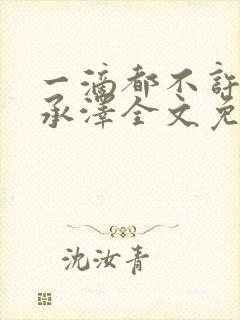 一滴都不许
承泽全文免
沈汝青